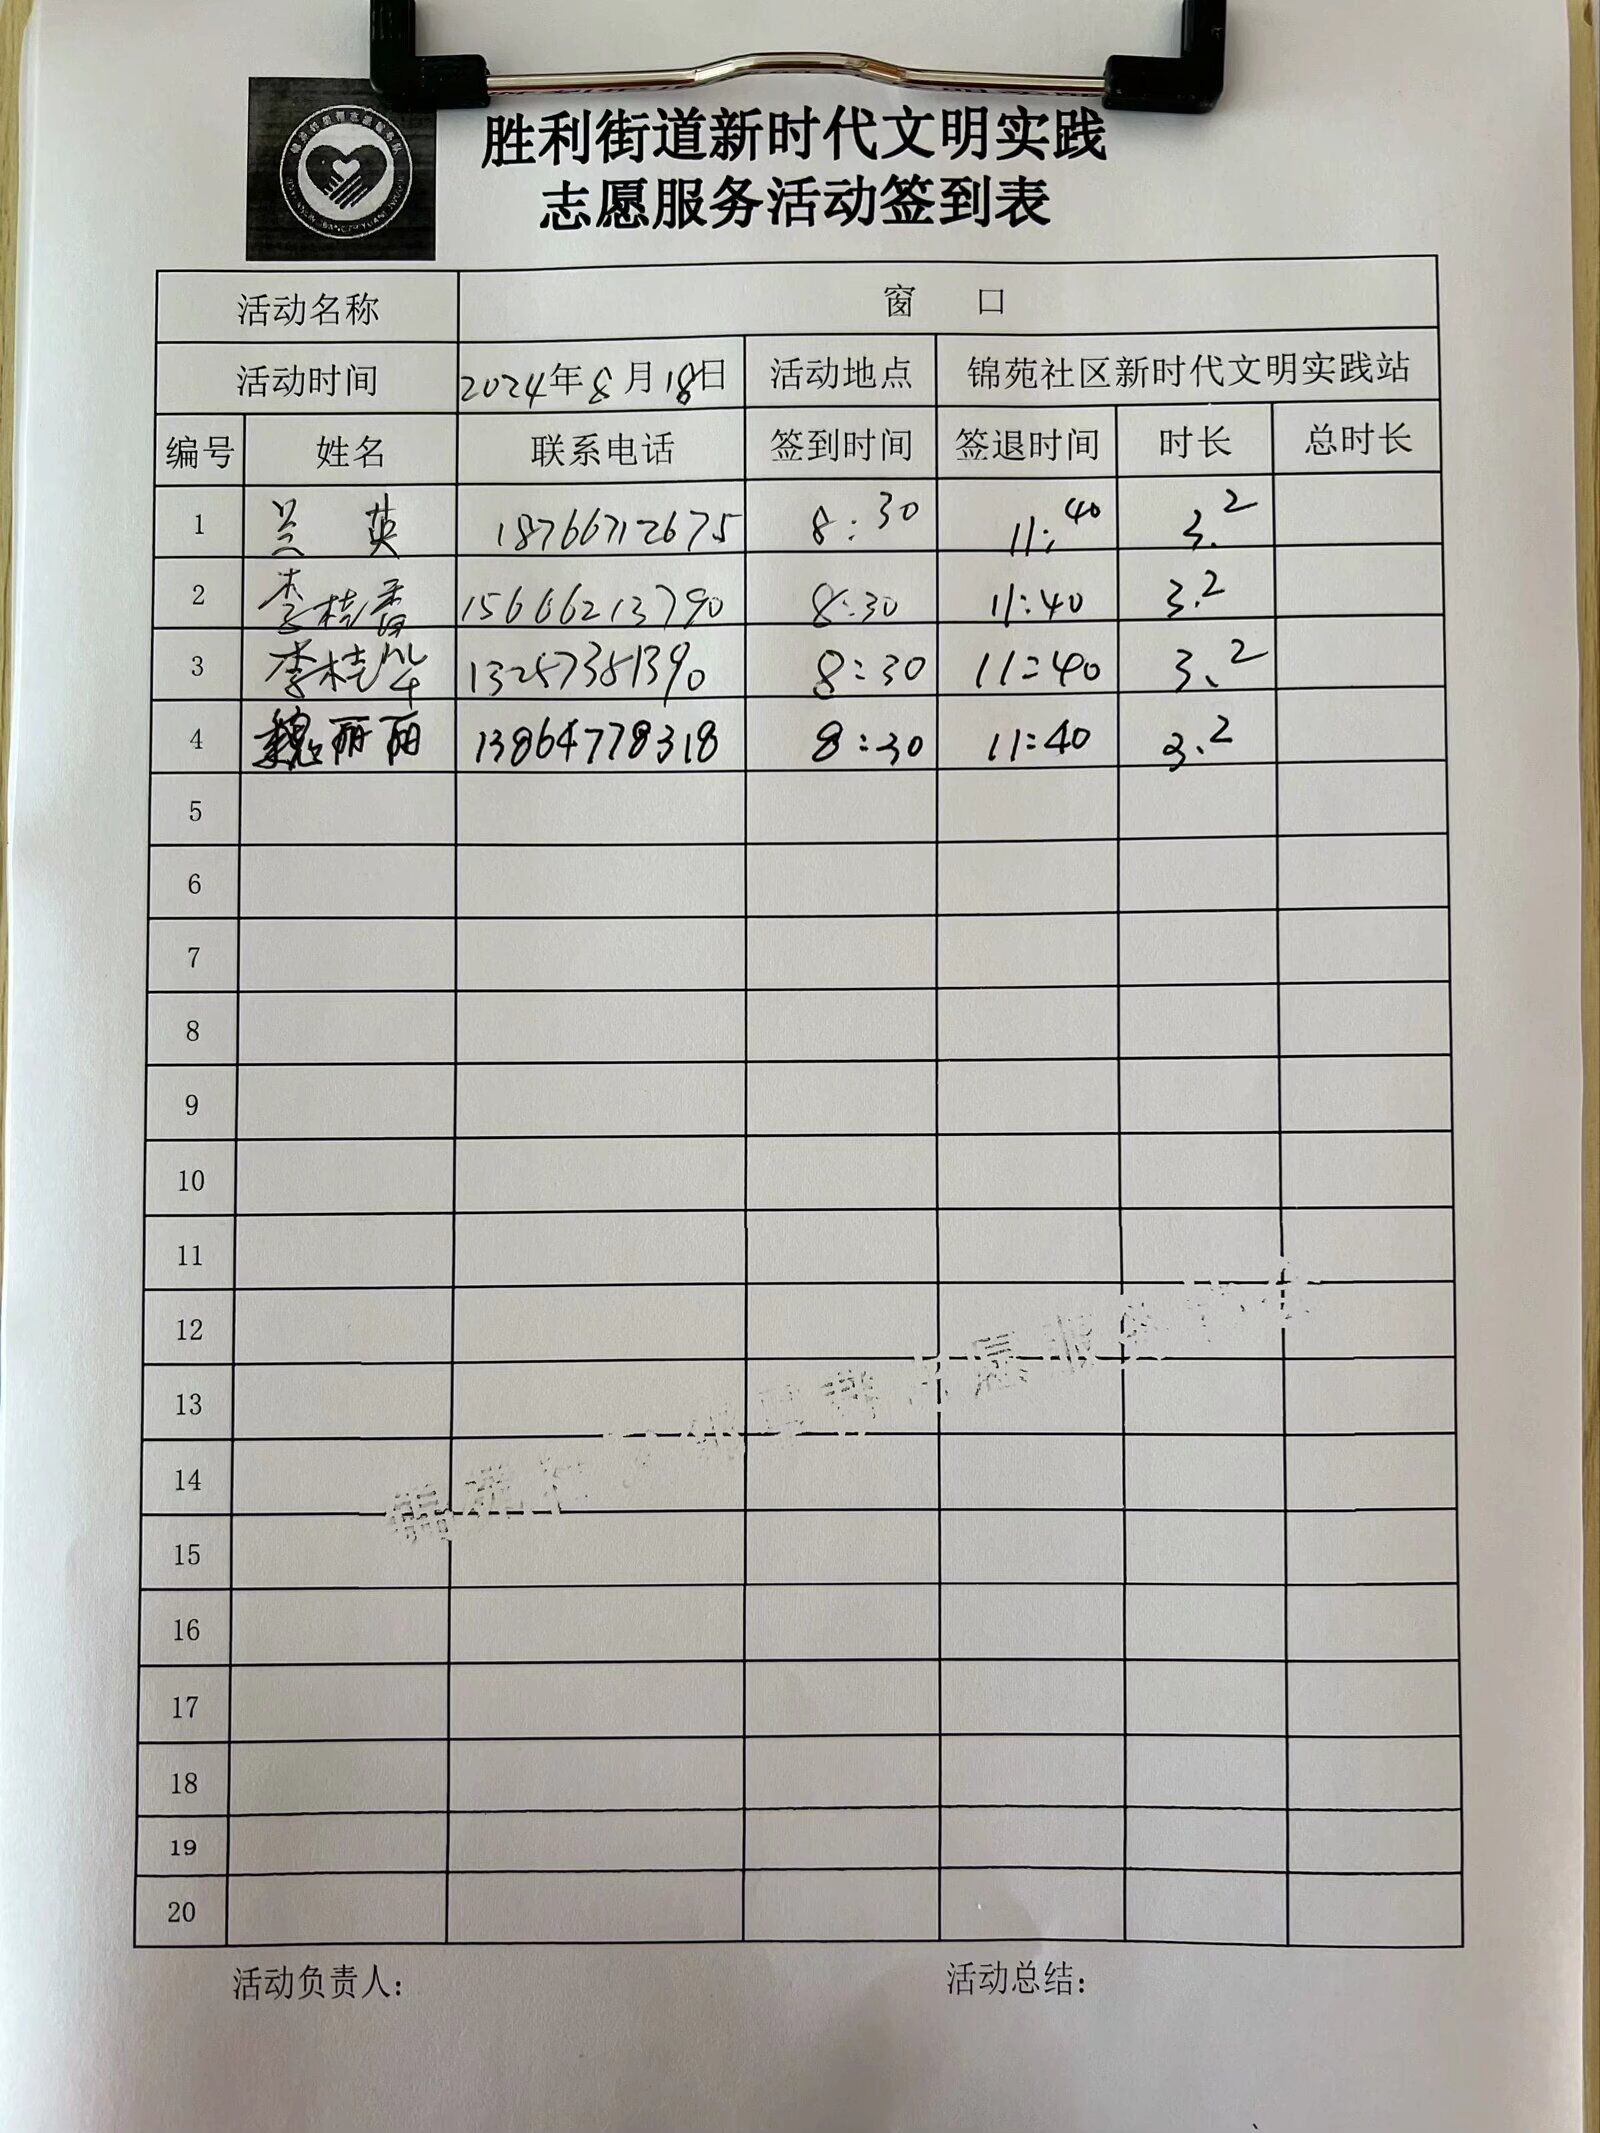 胜利街道新时代文明实践
志愿服务活动签到表
活动名称 窗 口
活动时间 2024年8月18日 活动地点 锦苑社区新时代文明实践站
编号 姓名 联系电话 签到时间 签退时间 时长 总时长
1 兰 英 18766712675 8:30 11:40 3.2
2 李桂香 15666213790 8:30 11:40 3.2
3 李桂华 13257351390 8:30 11:40 3.2
4 魏丽丽 13864778318 8:30 11:40 3.2
5
6
7
8
9
10
11
12
13
14
15
16
17
18
19
20
活动负责人: 活动总结: